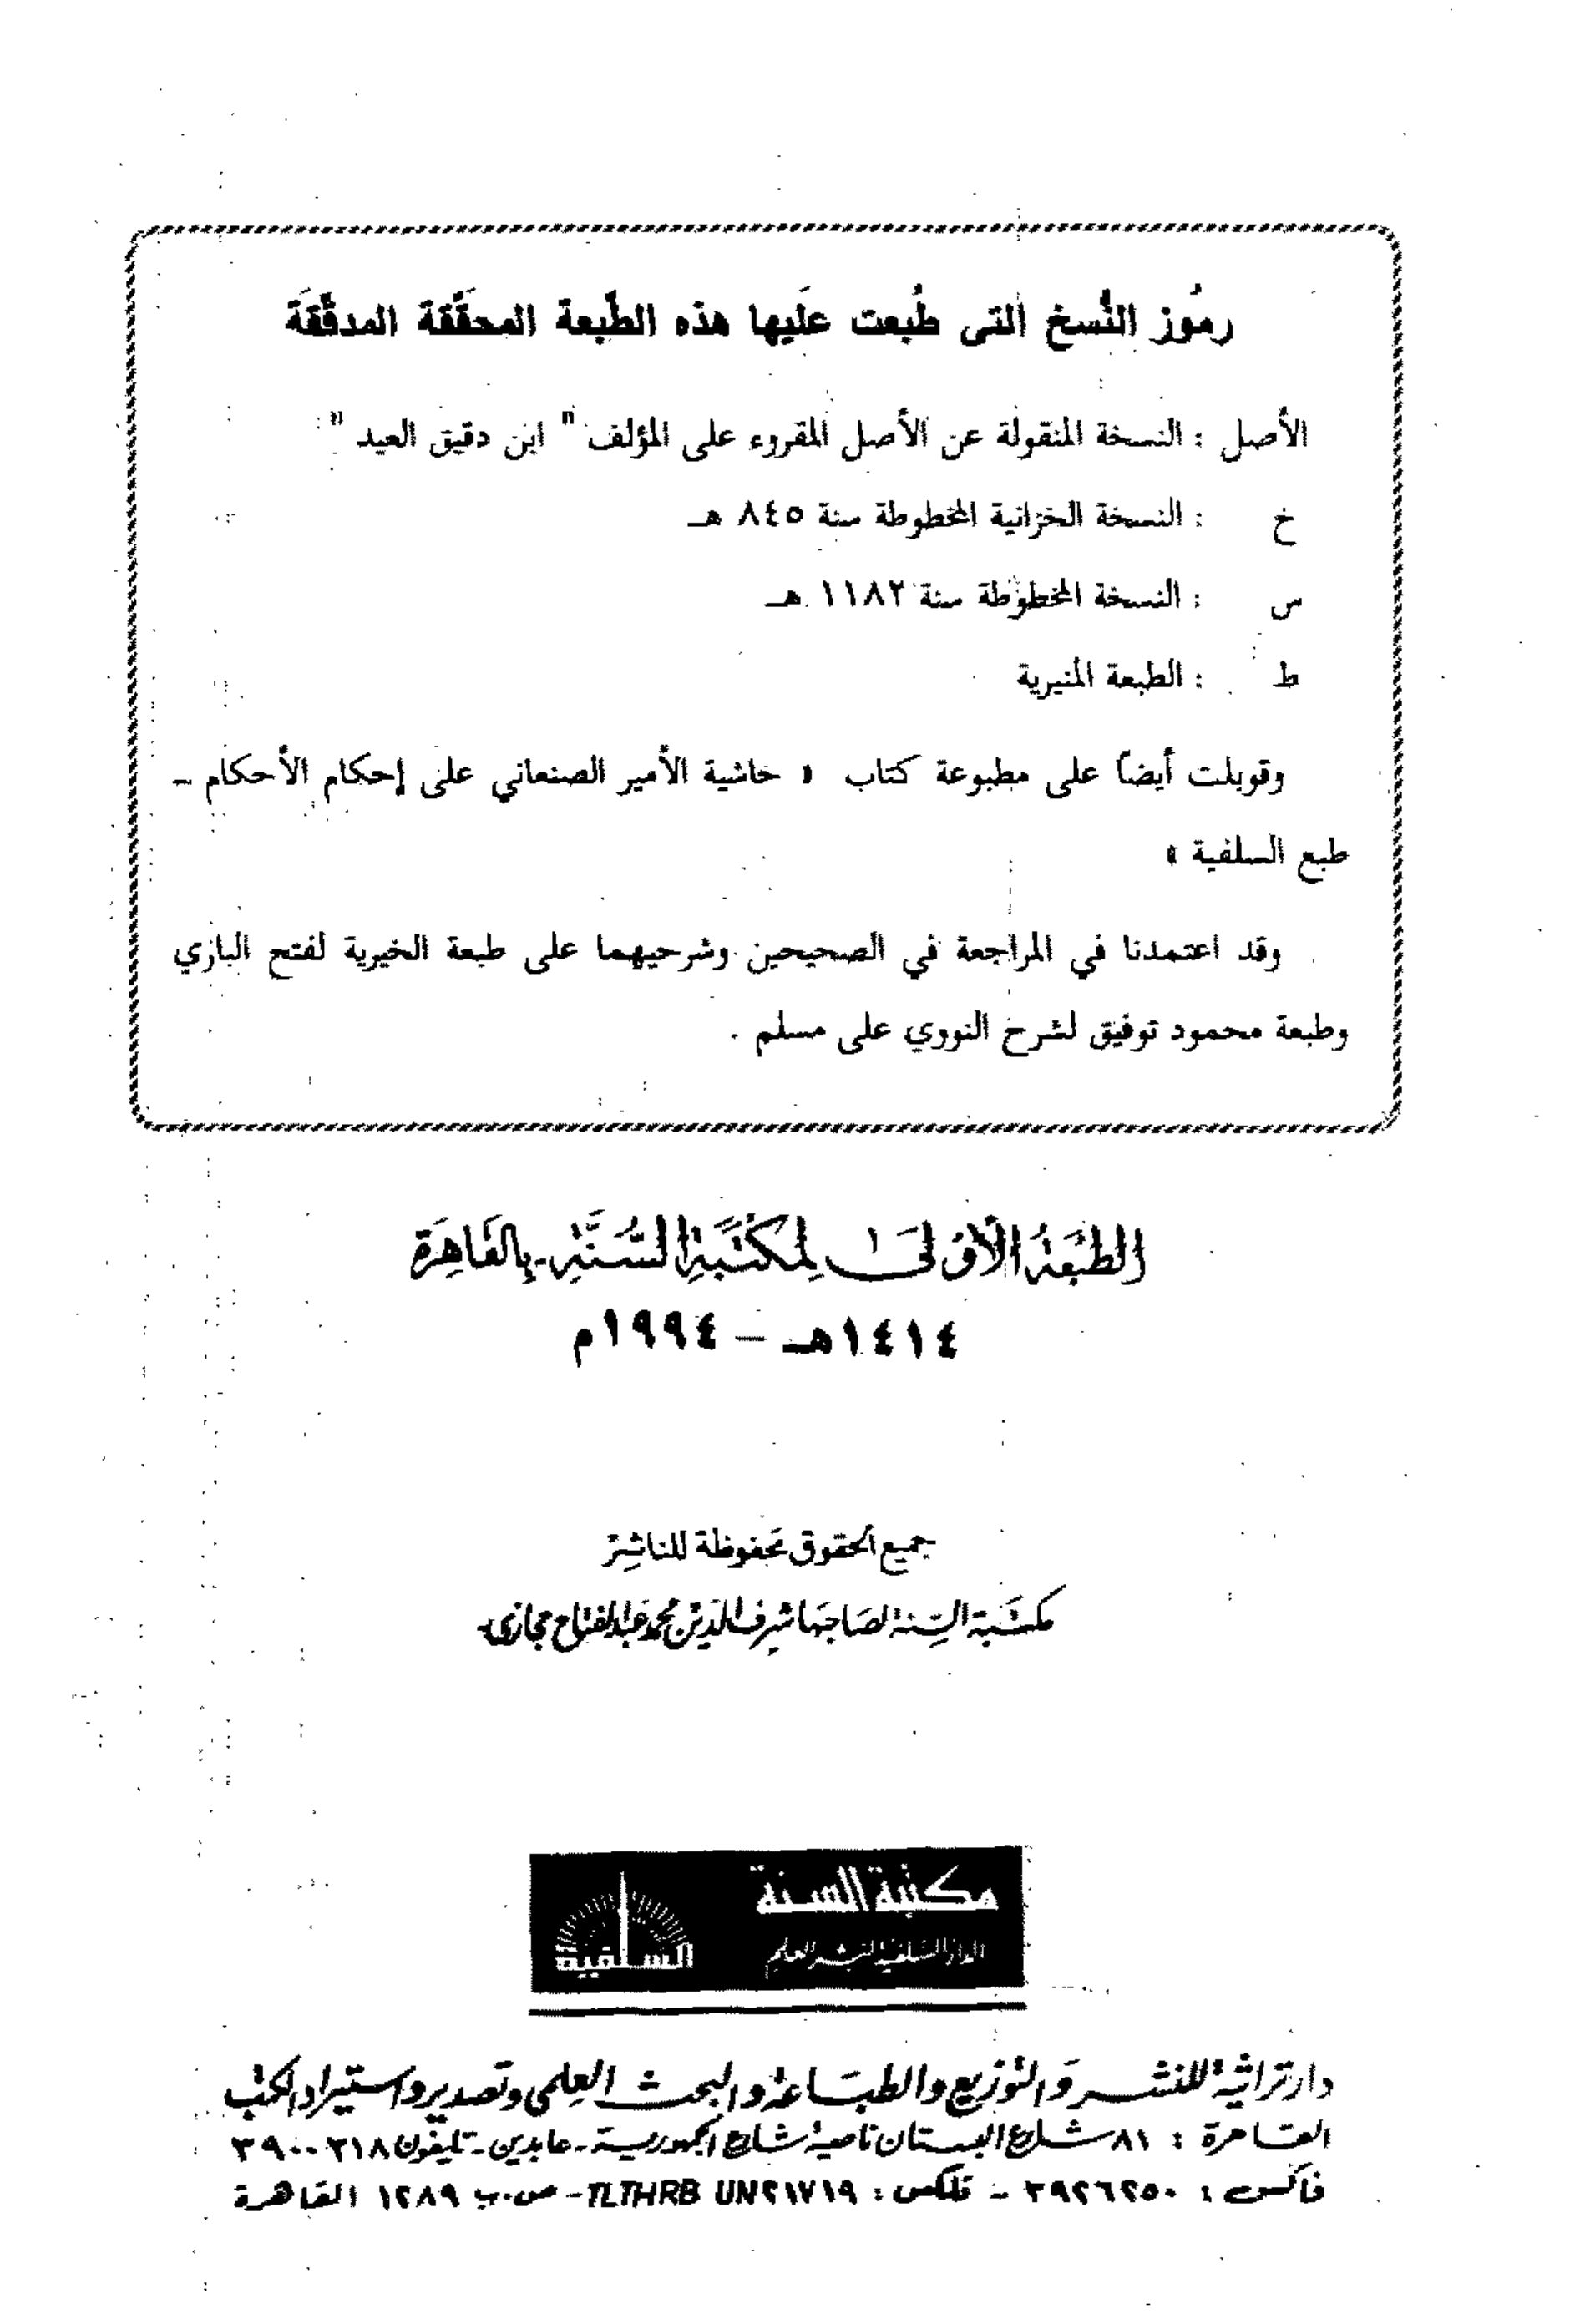 رموز النُّسخ التى طُبعت عليها هذه الطَّبعة المحقَّقة المدقَّقة
الأصل : النسخة المنقولة عن الأصل المقروء على المؤلف " ابن دقيق العيد "
خ : النسخة الخزانية المخطوطة سنة ٨٤٥ هـ
س : النسخة المخطوطة سنة ١١٨٢ هـ
ط : الطبعة المنيرية
وقوبلت أيضاً على مطبوعة كتاب « حاشية الأمير الصنعاني على إحكام الأحكام –
طبع السلفية »
وقد اعتمدنا في المراجعة في الصحيحين وشرحيهما على طبعة الخيرية لفتح الباري
وطبعة محمود توفيق لشرح النووي على مسلم .
الطَّبْعَةُ الأُولَى لِمَكْتَبَةِ السُّنَّةِ - بِالقَاهِرَة
١٤١٤هـ – ١٩٩٤م
جميع الحقوق محفوظة للناشر
مكتبة السنة لصاحبها شرف الدين محمد عبد الفتاح حجازى
مكتبة السنة
الدار السلفية لنشر العلم
السلفية
دار تراثية للنشر والتوزيع والطباعة والبحث العلمى وتصدير واستيراد الكتب
القاهرة : ٨١ شارع البستان ناصية شارع الجمهورية - عابدين - تليفون ٣٩٠٠٣١٨
فاكس : ٣٩٢٦٢٥٠ – تلكس : ٢١٧١٩ TLTHRB UN – ص.ب ١٢٨٩ القاهرة